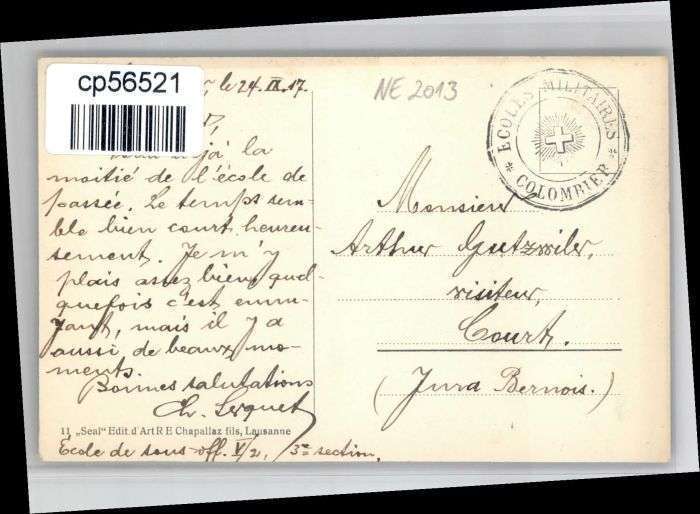 cp56521
le 24 IX. 17.
NE 2013
ECOLES MILITAIRES
* COLOMBIER *
la
moitié de l'école de
passée. Le temps sem-
ble bien court, heureu-
sement. Je m'y
plais assez bien, quel-
quefois c'est ennu-
yant, mais il y a
aussi de beaux mo-
ments.
Bonnes salutations
Ch.
Monsieur
Arthur Gutzwiler,
visiteur,
Court.
(Jura Bernois.)
11 „Seal" Edit d'Art R E Chapallaz fils, Lausanne
Ecole de sous-off. V/2, 3e section.